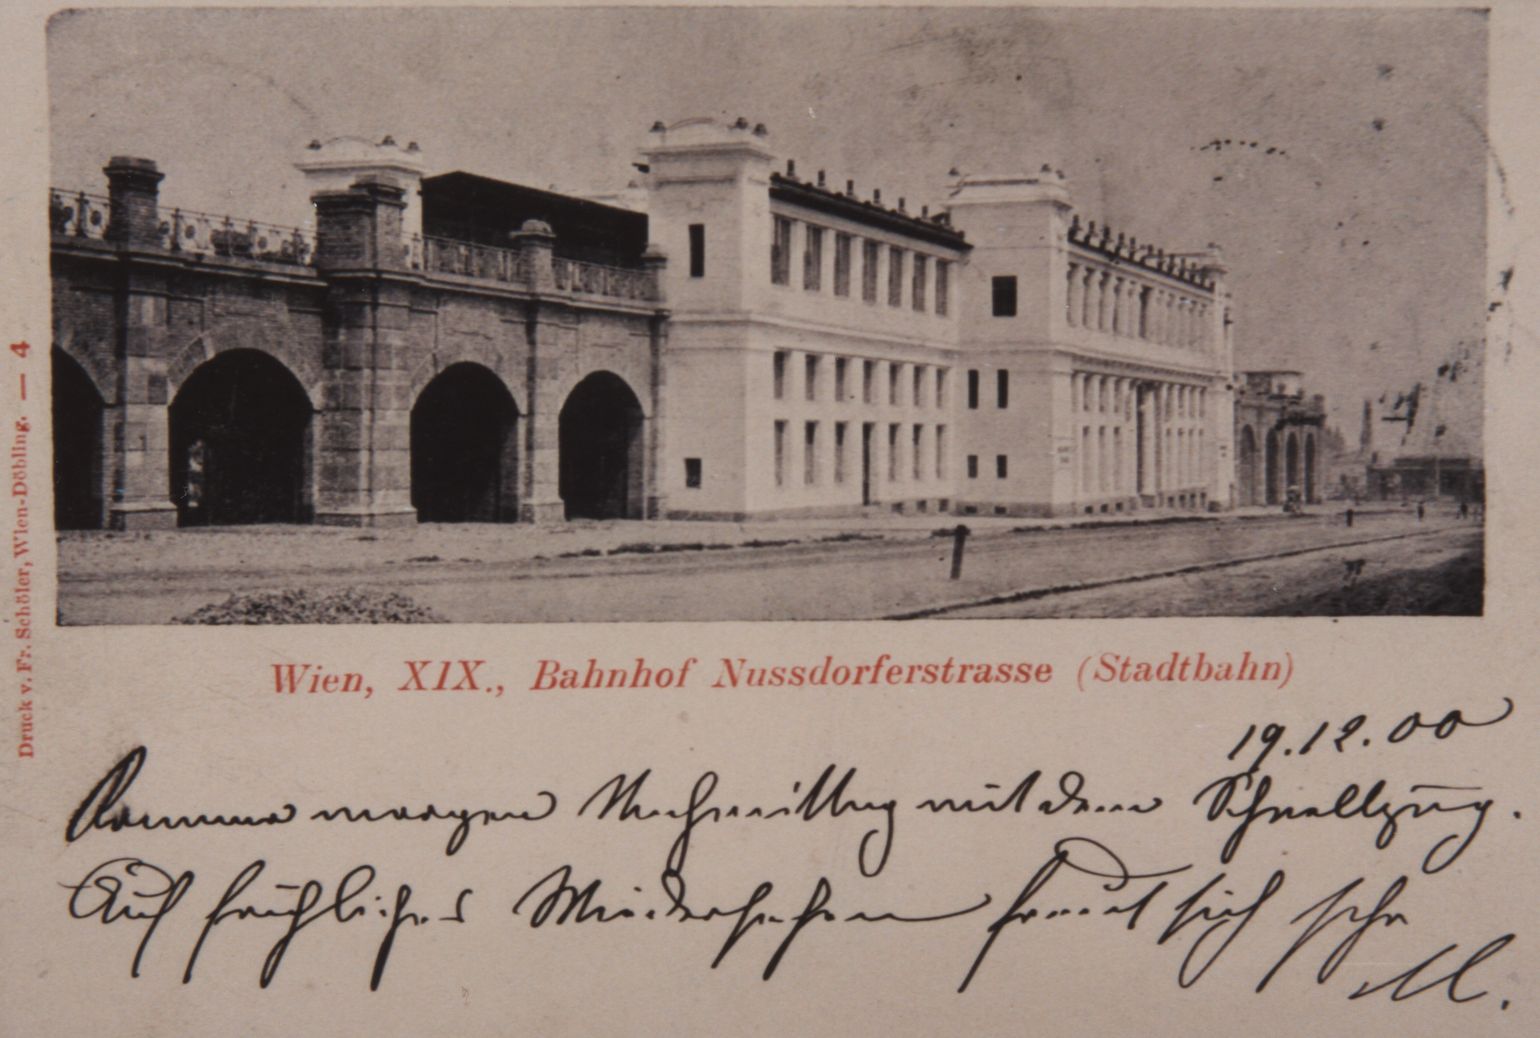 Druck v. Fr. Schöler, Wien-Döbling. — 4
Wien, XIX., Bahnhof Nussdorferstrasse (Stadtbahn)
19.12.00
Komme morgen Nachmittag mit dem Schnellzug.
Auf Wiedersehen freut sich sehr
M.